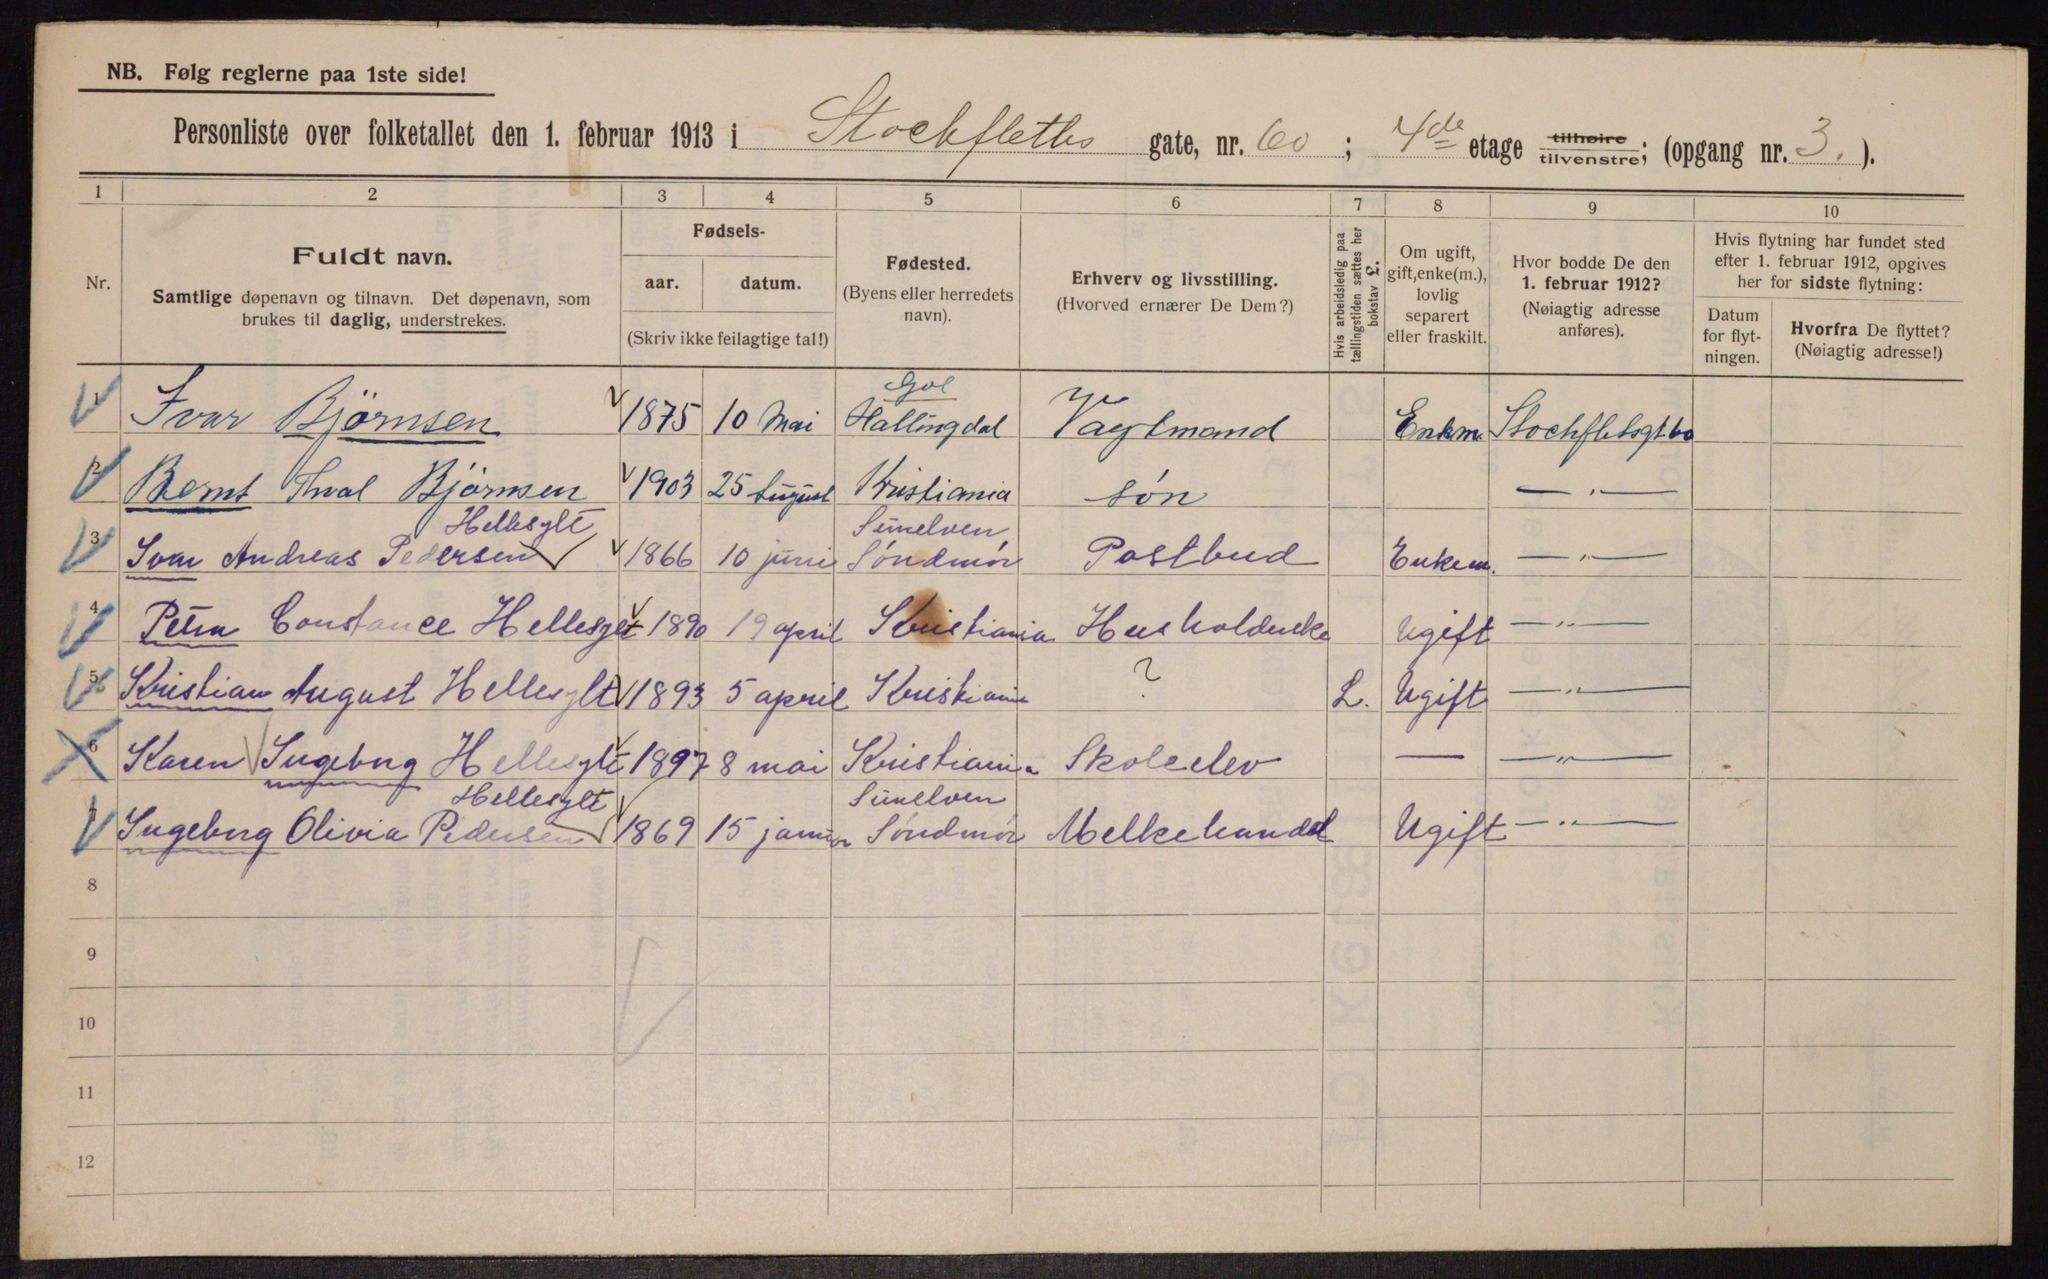 NB. Følg reglerne paa 1ste side!
Personliste over folketallet den 1. februar 1913 i Stockfleths gate, nr. 60; 4de etage tilhøire tilvenstre; (opgang nr. 3.).
1 2 3 4 5 6 7 8 9 10
Nr.
Fuldt navn.
Samtlige døpenavn og tilnavn. Det døpenavn, som
brukes til daglig, understrekes.
Fødsels-
aar. datum.
(Skriv ikke feilagtige tal!)
Fødested.
(Byens eller herredets
navn).
Erhverv og livsstilling.
(Hvorved ernærer De Dem?)
Hvis arbeidsledig paa
tællingstiden sættes her
bokstav L.
Om ugift,
gift, enke(m.),
lovlig
separert
eller fraskilt.
Hvor bodde De den
1. februar 1912?
(Nøiagtig adresse
anføres).
Hvis flytning har fundet sted
efter 1. februar 1912, opgives
her for sidste flytning:
Datum
for flyt-
ningen.
Hvorfra De flyttet?
(Nøiagtig adresse!)
Gol
1 Ivar Björnsen 1875 10 Mai Hallingdal Vagtmand Enkm. Stockfletsgt 60
2 Bernt Björnsen 1903 25 August Kristiania søn — " —
Hellesylt Sunelven
3 Ivar Andreas Pedersen 1866 10 juni Söndmör Postbud Enkem. — " —
4 Petra Constance Hellesylt 1890 19 april Kristiania Ugift — " —
5 Kristian August Hellesylt 1893 5 april Kristiania ? L. Ugift — " —
6 Karen Ingeborg Hellesylt 1897 8 mai Kristiania Skoleelev — — " —
Hellesylt Sunelven
7 Ingeborg Olivia Pedersen 1869 15 januar Söndmör Melkehandel Ugift — " —
8
9
10
11
12